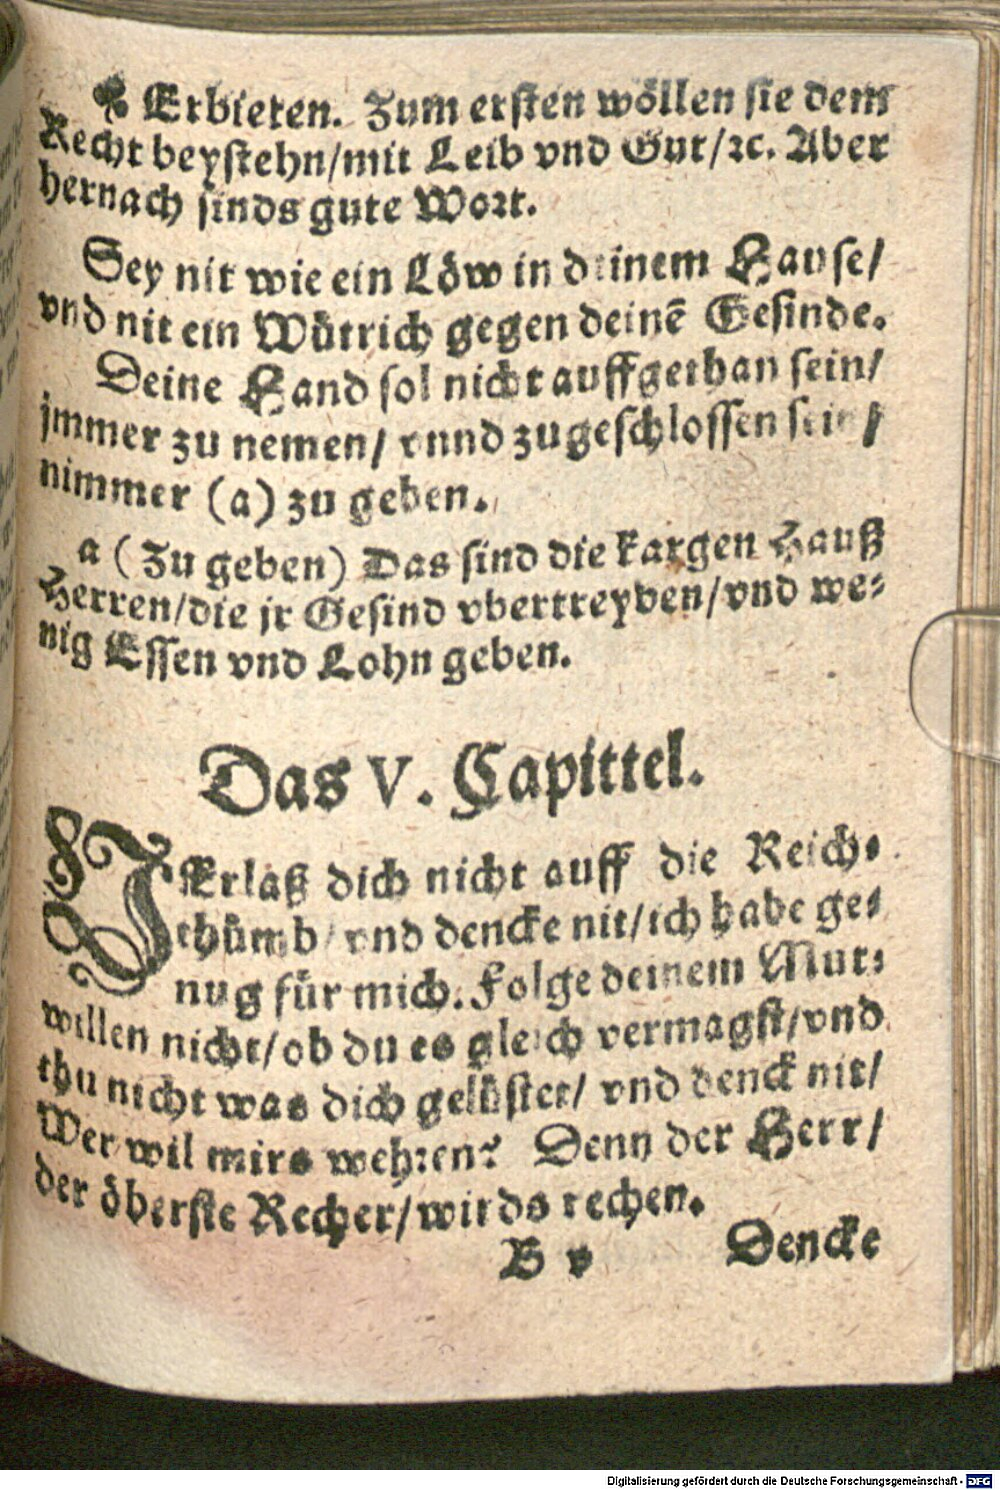 ❧ Erbieten. Zum ersten wöllen sie dem
Recht beystehn/mit Leib vnd Gut/ꝛc. Aber
hernach sinds gute Wort.
Sey nit wie ein Löw in deinem Hause/
vnd nit ein Wütrich gegen deinē Gesinde.
Deine Hand sol nicht auffgethan sein/
jmmer zu nemen/ vnnd zugeschlossen sein/
nimmer (a) zu geben.
a (Zu geben) Das sind die kargen Hauß
Herren/die jr Gesind vbertreyben/vnd we-
nig Essen vnd Lohn geben.
Das V. Capittel.
VErlaß dich nicht auff die Reich-
thümb/ vnd dencke nit/ich habe ge-
nug für mich. Folge deinem Mut-
willen nicht/ob du es gleich vermagst/vnd
thu nicht was dich gelüstet/ vnd denck nit/
Wer wil mirs wehren? Denn der Herr/
der öberste Recher/wirds rechen.
B v Dencke
Digitalisierung gefördert durch die Deutsche Forschungsgemeinschaft - DFG